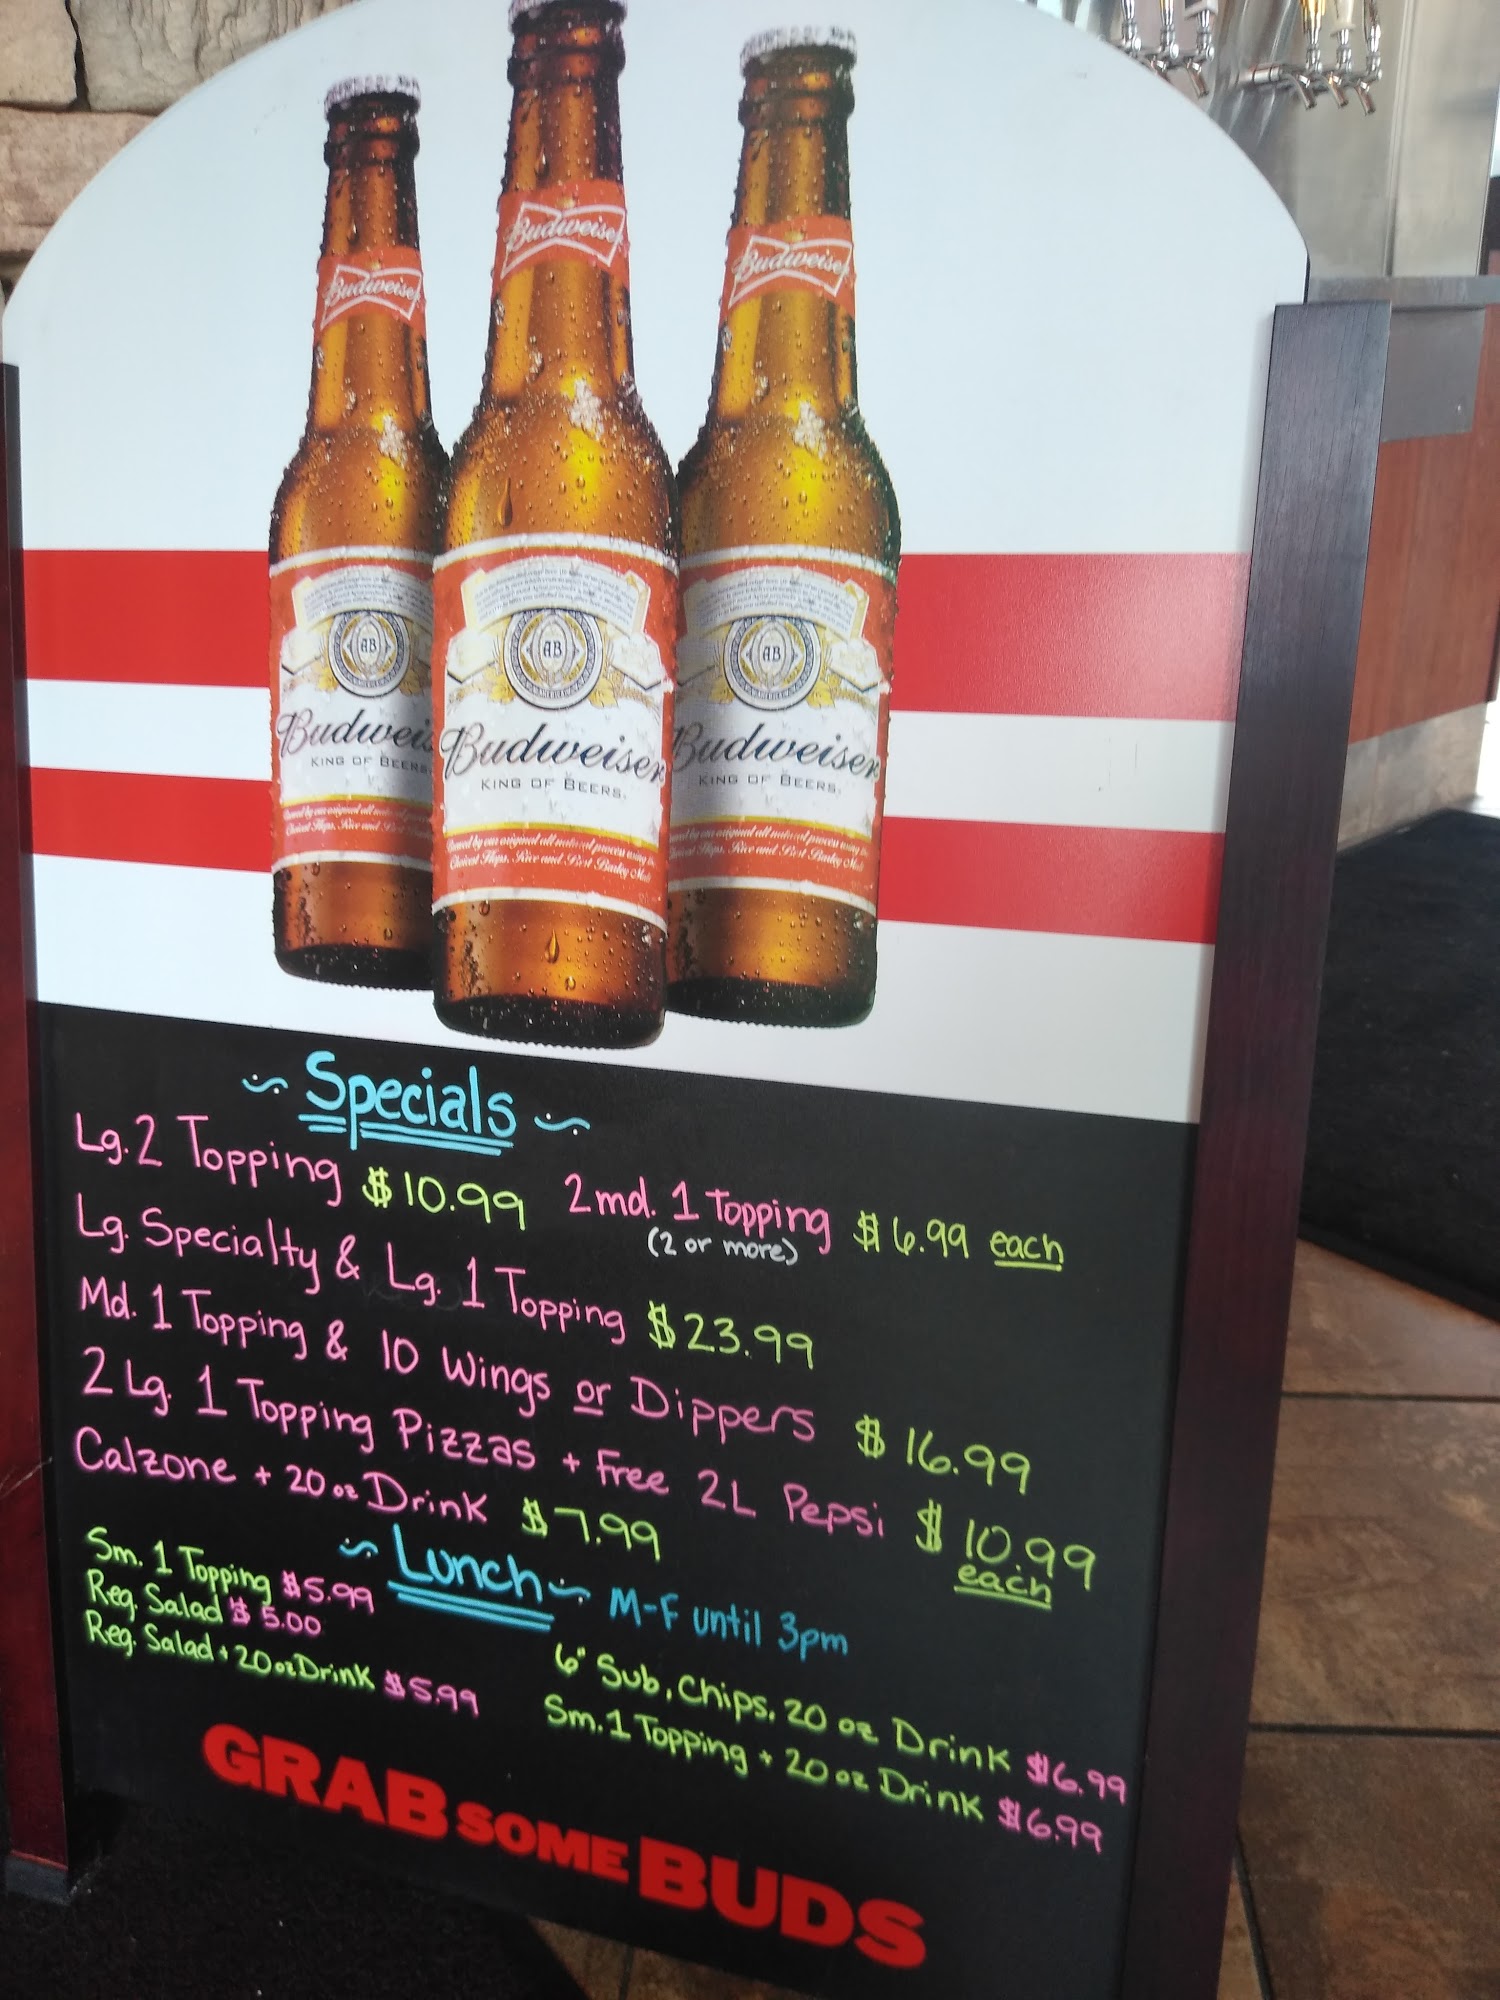 Budweiser
Budweiser
Budweiser
AB
AB
AB
Budweis
KING OF BEERS
Budweiser
KING OF BEERS
Budweiser
KING OF BEERS
Brewed by our original all natural process using the
Choicest Hops, Rice and Best Barley Malt
~ Specials ~
Lg. 2 Topping $10.99
2 md. 1 Topping $6.99 each
(2 or more)
Lg. Specialty & Lg. 1 Topping $23.99
Md. 1 Topping & 10 Wings or Dippers $16.99
2 Lg. 1 Topping Pizzas + Free 2L Pepsi $10.99
each
Calzone + 20 oz Drink $7.99
~ Lunch ~ M-F until 3pm
Sm. 1 Topping $5.99
Reg. Salad $5.00
Reg. Salad + 20 oz Drink $5.99
6" Sub, Chips, 20 oz Drink $6.99
Sm. 1 Topping + 20 oz Drink $6.99
GRAB SOME BUDS